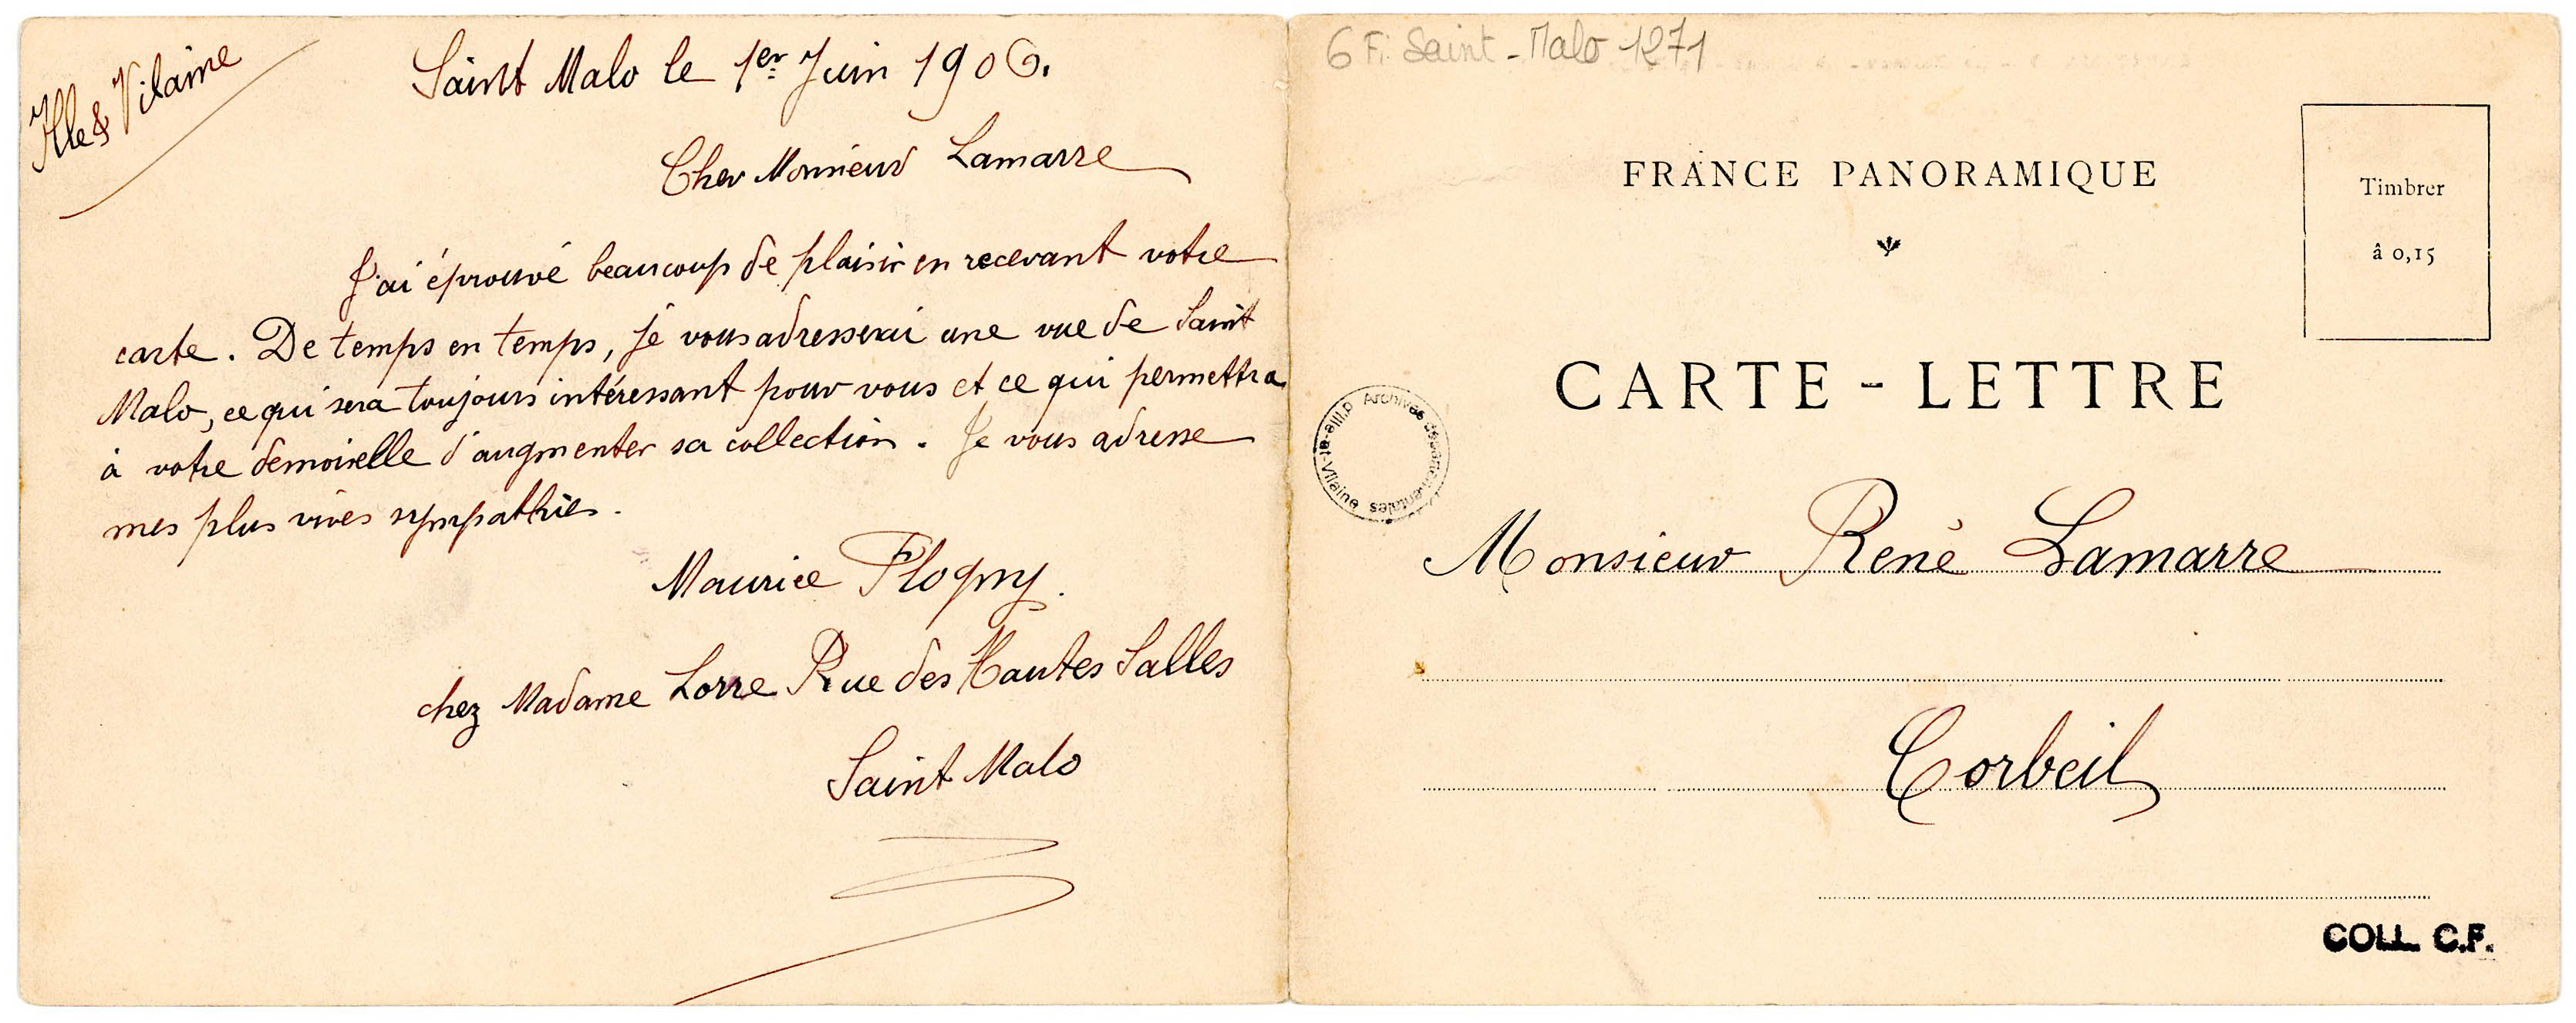 Ille & Vilaine
Saint Malo le 1er Juin 1906.
Cher Monsieur Lamarre
J'ai éprouvé beaucoup de plaisir en recevant votre
carte. De temps en temps, je vous adresserai une vue de Saint
Malo, ce qui sera toujours intéressant pour vous et ce qui permettra
à votre demoiselle d'augmenter sa collection. Je vous adresse
mes plus vives sympathies.
Maurice Flogny.
chez Madame Lorre Rue des Hautes Salles
Saint Malo
6 Fi Saint-Malo 1271
FRANCE PANORAMIQUE
Timbrer
à 0,15
CARTE-LETTRE
Archives départementales d'Ille-et-Vilaine
Monsieur René Lamarre
Corbeil
COLL. C.F.